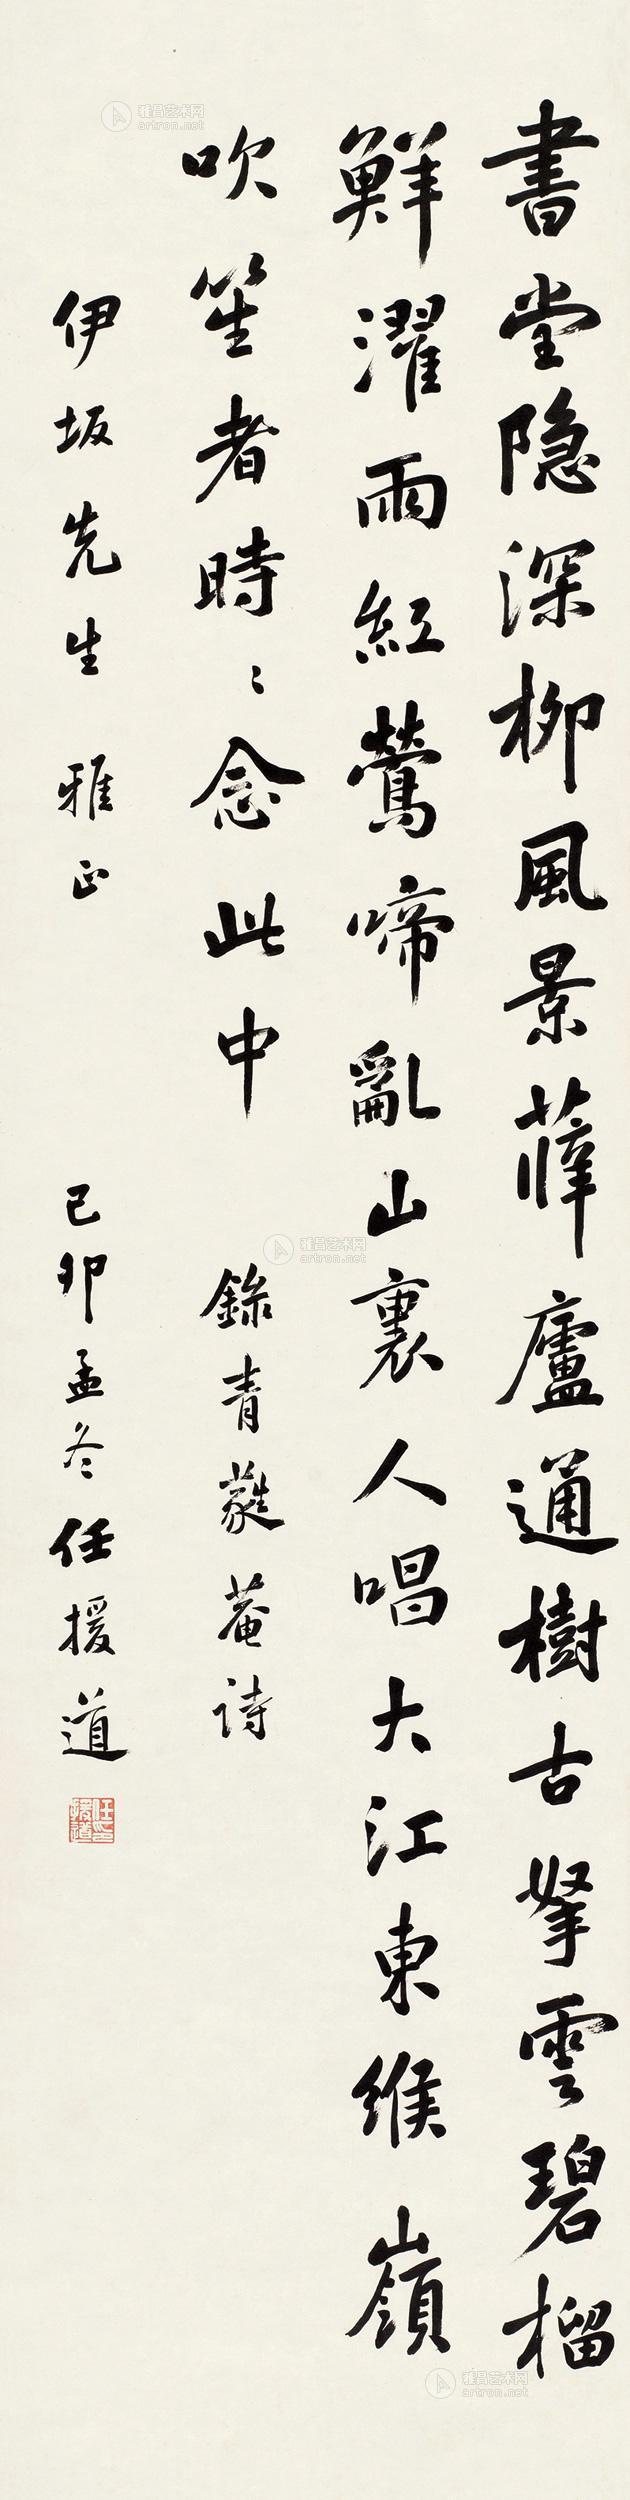 書堂隐深柳風景薜廬通樹古拏雲碧榴
鮮濯雨紅鶯啼亂山裏人唱大江東緱嶺
吹笙者時〻念此中
錄青蕤菴诗
伊坂先生 雅正
己卯孟冬任援道
任援道印
雅昌艺术网
artron.net
雅昌艺术网
artron.net
雅昌艺术网
artron.net